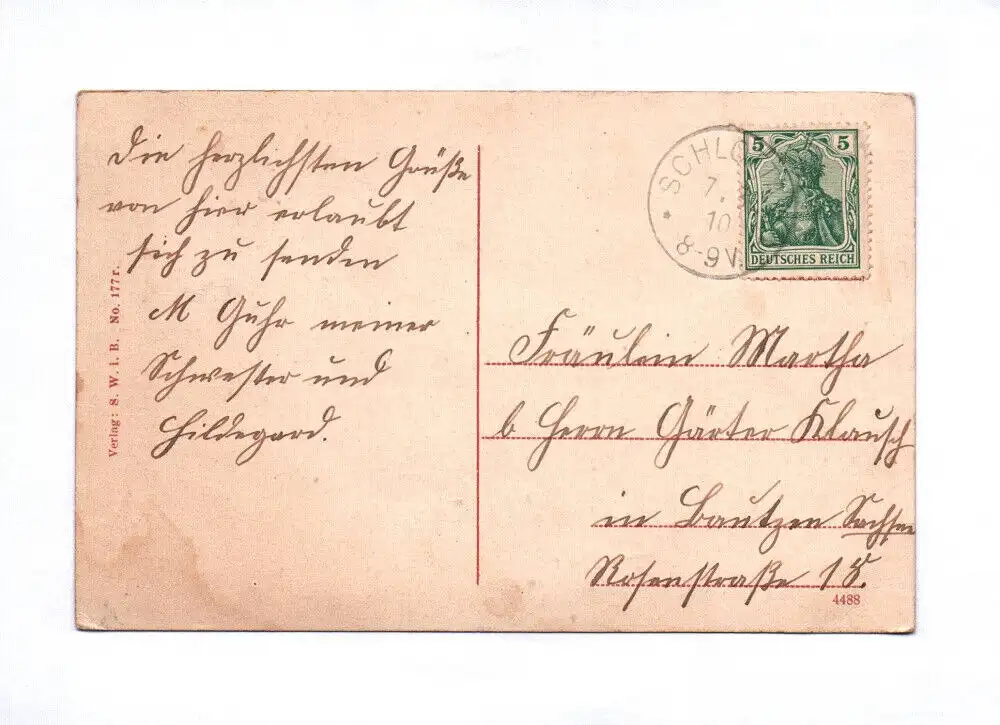 Die herzlichsten Grüße
von hier erlaubt
sich zu senden
M Guhr meiner
Schwester und
Hildegard.
Verlag: S. W. i. B. No. 177r.
SCHLO
7.
10
8-9V.
5 5
DEUTSCHES REICH
Fräulein Martha
b Herrn Gärter Klausch
in Bautzen Sachsen
Rosenstraße 18.
4488